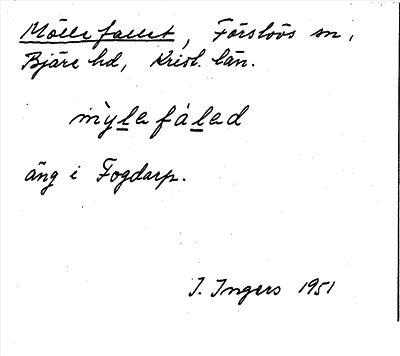 Möllefallet, Förslövs sn,
Bjäre hd, Krist. län.
mỳlefáled
äng i Fogdarp.
I. Ingers 1951